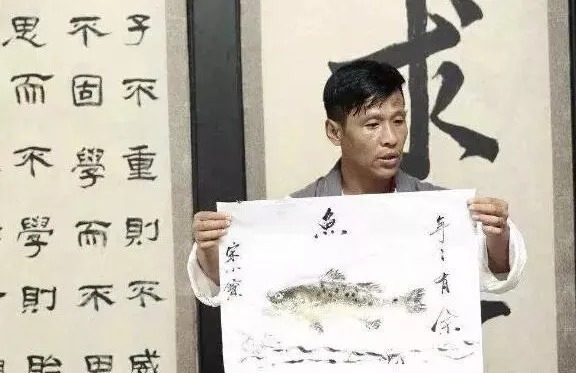 子不重則不威
不固學而不思
思而不學則殆
求
魚
年々有余
宋小寶